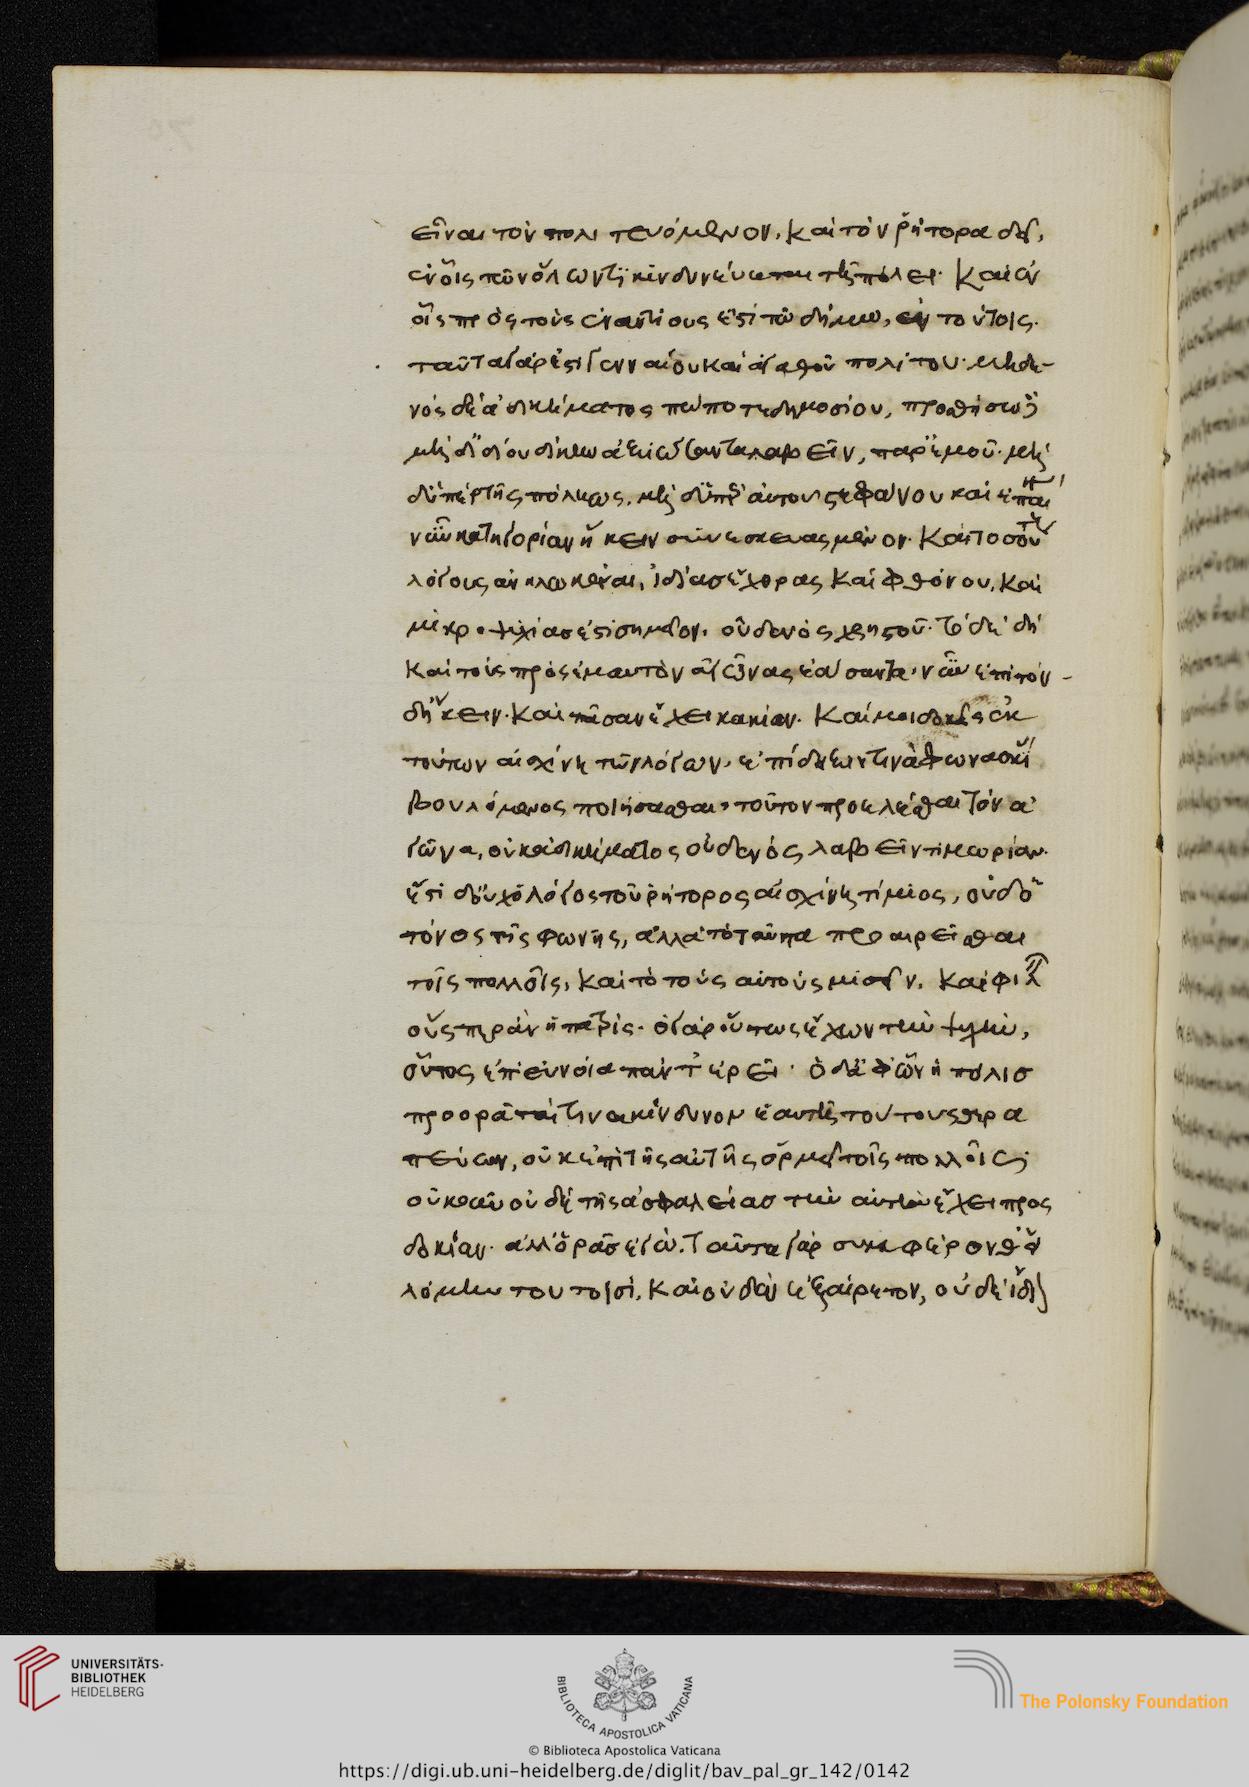 εἶναι τὸν πολιτευόμενον. καὶ τὸν ῥήτορα δεῖ,
ἐν οἷς τῶν ὅλων τι κινδυνεύεται τῇ πόλει. καὶ ἐν
οἷς πρὸς τοὺς ἐναντίους ἐστὶ τῷ δήμῳ, ἐν τούτοις.
ταῦτα γάρ ἐστι γενναίου καὶ ἀγαθοῦ πολίτου. μηδε-
νὸς δὲ ἀδικήματος πώποτε δημοσίου, προσθήσω
μὴ δ' ἰδίου δίκην ἀξιώσαντα λαβεῖν, παρ' ἐμοῦ. μή
θ' ὑπὲρ τῆς πόλεως. μή θ' ὑπὲρ αὑτοῦ στεφάνου καὶ ἐπαί
νου κατηγορίαν ἥκειν συνεσκευασμένον. καὶ τοσού
λόγους ἀνηλωκέναι, ἰδίας ἔχθρας καὶ φθόνου. καὶ
μικροψυχίας ἐστὶ σημεῖον. οὐδενὸς χρηστοῦ. τὸ δὲ δὴ
καὶ τοὺς πρὸς ἐμαυτὸν ἀγῶνας ἐάσαντα. νῦν ἐπὶ τόν
δ' ἥκειν. καὶ πᾶσαν ἔχει κακίαν. καί μοι δοκεῖς ἐκ
τούτων αἰσχίνη τῶν λόγων. ἐπίδειξίν τινα φωνασκί
βουλόμενος ποιήσασθαι, τοῦτον προελέσθαι τὸν ἀ
γῶνα, οὐκ ἀδικήματος οὐδενὸς λαβεῖν τιμωρίαν.
ἔστι δ' οὐχ ὁ λόγος τοῦ ῥήτορος αἰσχίνη τίμιος, οὐδ' ὁ
τόνος τῆς φωνῆς, ἀλλὰ τὸ ταὐτὰ προαιρεῖσθαι
τοῖς πολλοῖς, καὶ τὸ τοὺς αὐτοὺς μισεῖν. καὶ φιλ
οὕσπερ ἂν ἡ πατρίς. ὁ γὰρ οὕτως ἔχων τὴν ψυχὴν,
οὗτος ἐπ' εὐνοία πάντ' ἐρεῖ. ὁ δ' ἀφ' ὧν ἡ πόλισ
προορᾶταί τινα κίνδυνον ἑαυτῇ τούτους θερα
πεύων, οὐκ ἐπὶ τῆς αὐτῆς ὁρμεῖ τοῖς πολλοῖς
οὔκουν οὐδὲ τῆς ἀσφαλείασ τὴν αὐτὴν ἔχει προς
δοκίαν. ἀλλ' ὁρᾷς ἐγώ. ταὐτὰ γὰρ συμφέρονθ' εἱ
λόμην τουτοισί. καὶ οὐδὲν ἐξαίρετον, οὐδὲ ἴδι
UNIVERSITÄTS-
BIBLIOTHEK
HEIDELBERG
BIBLIOTECA APOSTOLICA VATICANA
The Polonsky Foundation
© Biblioteca Apostolica Vaticana
https://digi.ub.uni-heidelberg.de/diglit/bav_pal_gr_142/0142